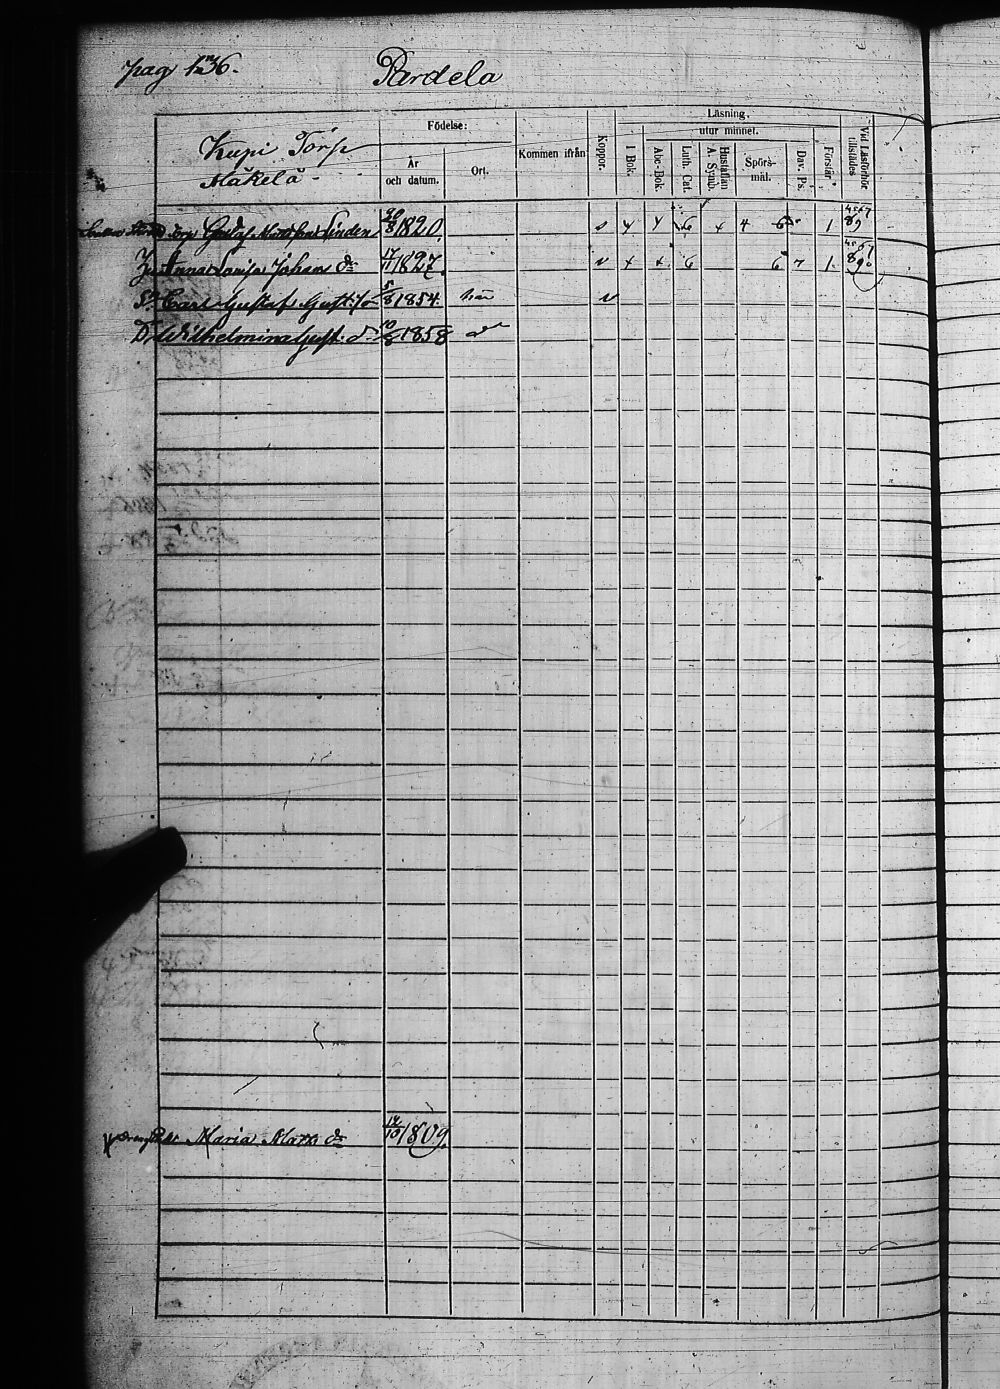 pag 136. Pardela
Kupi Torp
Mäkelä
Födelse:
År och datum.
Ort.
Kommen ifrån
Koppor.
Läsning.
utur minnet.
I Bok.
Abc-Bok
Luth. Cat.
Hustaflan A. Symb.
Spörs-mål.
Dav. Ps.
Förstår.
Vid Läsförhör tillstädes
Gustaf Linden 20/8 1820. 6 4 6 1
Anna Lovisa Johans dr 1827. 6 6 1
Sr Carl Gustaf Gust. so 5/8 1854. här
Dr Wilhelmina Gust. d. 10/8 1858
Maria Matts dr 12/10 1809.